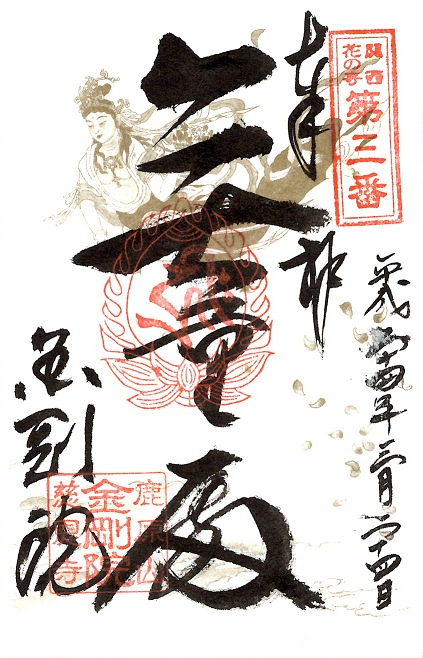 関西
花の寺
第三番
平成二十四年三月二十四日
奉拝
金剛院
鹿原山
金剛院
慈恩寺